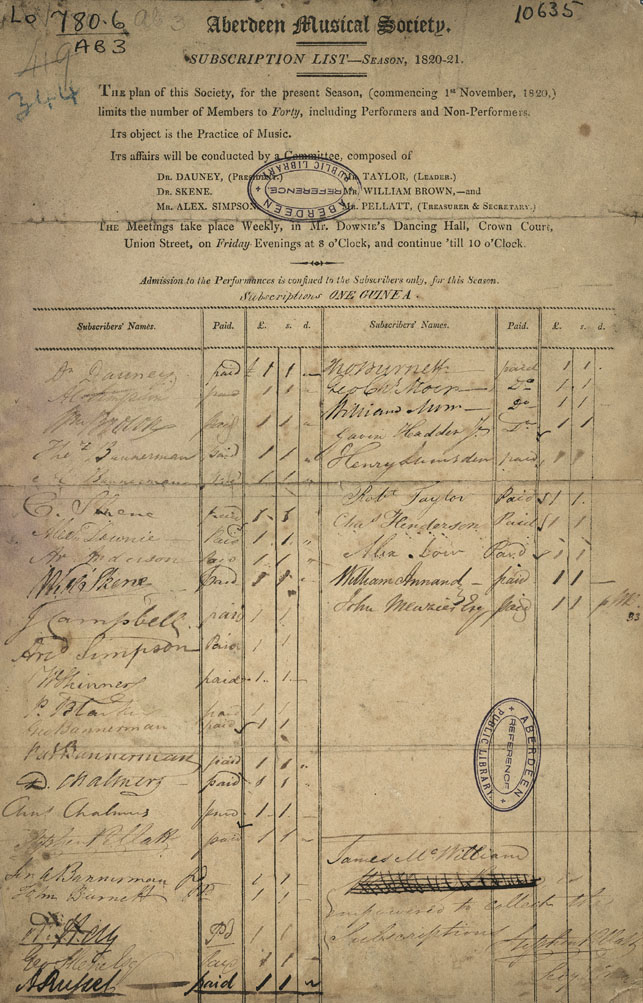 Lo 780.6
AB3
10635
344
Aberdeen Musical Society.
SUBSCRIPTION LIST—SEASON, 1820-21.
THE plan of this Society, for the present Season, (commencing 1st November, 1820,)
limits the number of Members to Forty, including Performers and Non-Performers.
ITS object is the Practice of Music.
ITS affairs will be conducted by a Committee, composed of
DR. DAUNEY, (PRESIDENT.) MR. TAYLOR, (LEADER.)
DR. SKENE. MR. WILLIAM BROWN,—and
MR. ALEX. SIMPSON MR. PELLATT, (TREASURER & SECRETARY.)
ABERDEEN PUBLIC LIBRARY REFERENCE
THE Meetings take place Weekly, in MR. DOWNIE'S Dancing Hall, Crown Court,
Union Street, on Friday Evenings at 8 o'Clock, and continue 'till 10 o'Clock.
Admission to the Performances is confined to the Subscribers only, for this Season.
Subscriptions ONE GUINEA.
Subscribers' Names. Paid. £. s. d. Subscribers' Names. Paid. £. s. d.
Dr Dauney paid £ 1 1
1 1
paid 1 1
Thos Bannerman paid 1 1
Bannerman paid 1 1
Skene paid 1 1
Alexr Downie paid 1 1
paid 1 1
Skene paid 1 1
J Campbell paid 1 1
Simpson Paid 1 1
W Shinner paid 1 1
paid 1 1
Geo Bannerman paid 1 1
Bannerman paid 1 1
D. Chalmers paid 1 1
Chas Chalmers paid 1 1
Stephen Pellatt paid 1 1
Bannerman Pd 1 1
Burnett Pd 1 1
Pd 1 1
1 1
A Russel paid 1 1
Thos Burnett paid 1 1
Geo Moir Do 1 1
William Do 1 1
Gavin Hadden Jr Do 1 1
Henry Lumsden paid 1 1
Robt Taylor Paid 1 1
Chas Henderson Paid 1 1
Alex Low Paid 1 1
William Annand paid 1 1
John Menzies Esq paid 1 1
ABERDEEN PUBLIC LIBRARY REFERENCE
James McWilliam
is
empowered to collect the
Subscriptions
Stephen Pellatt